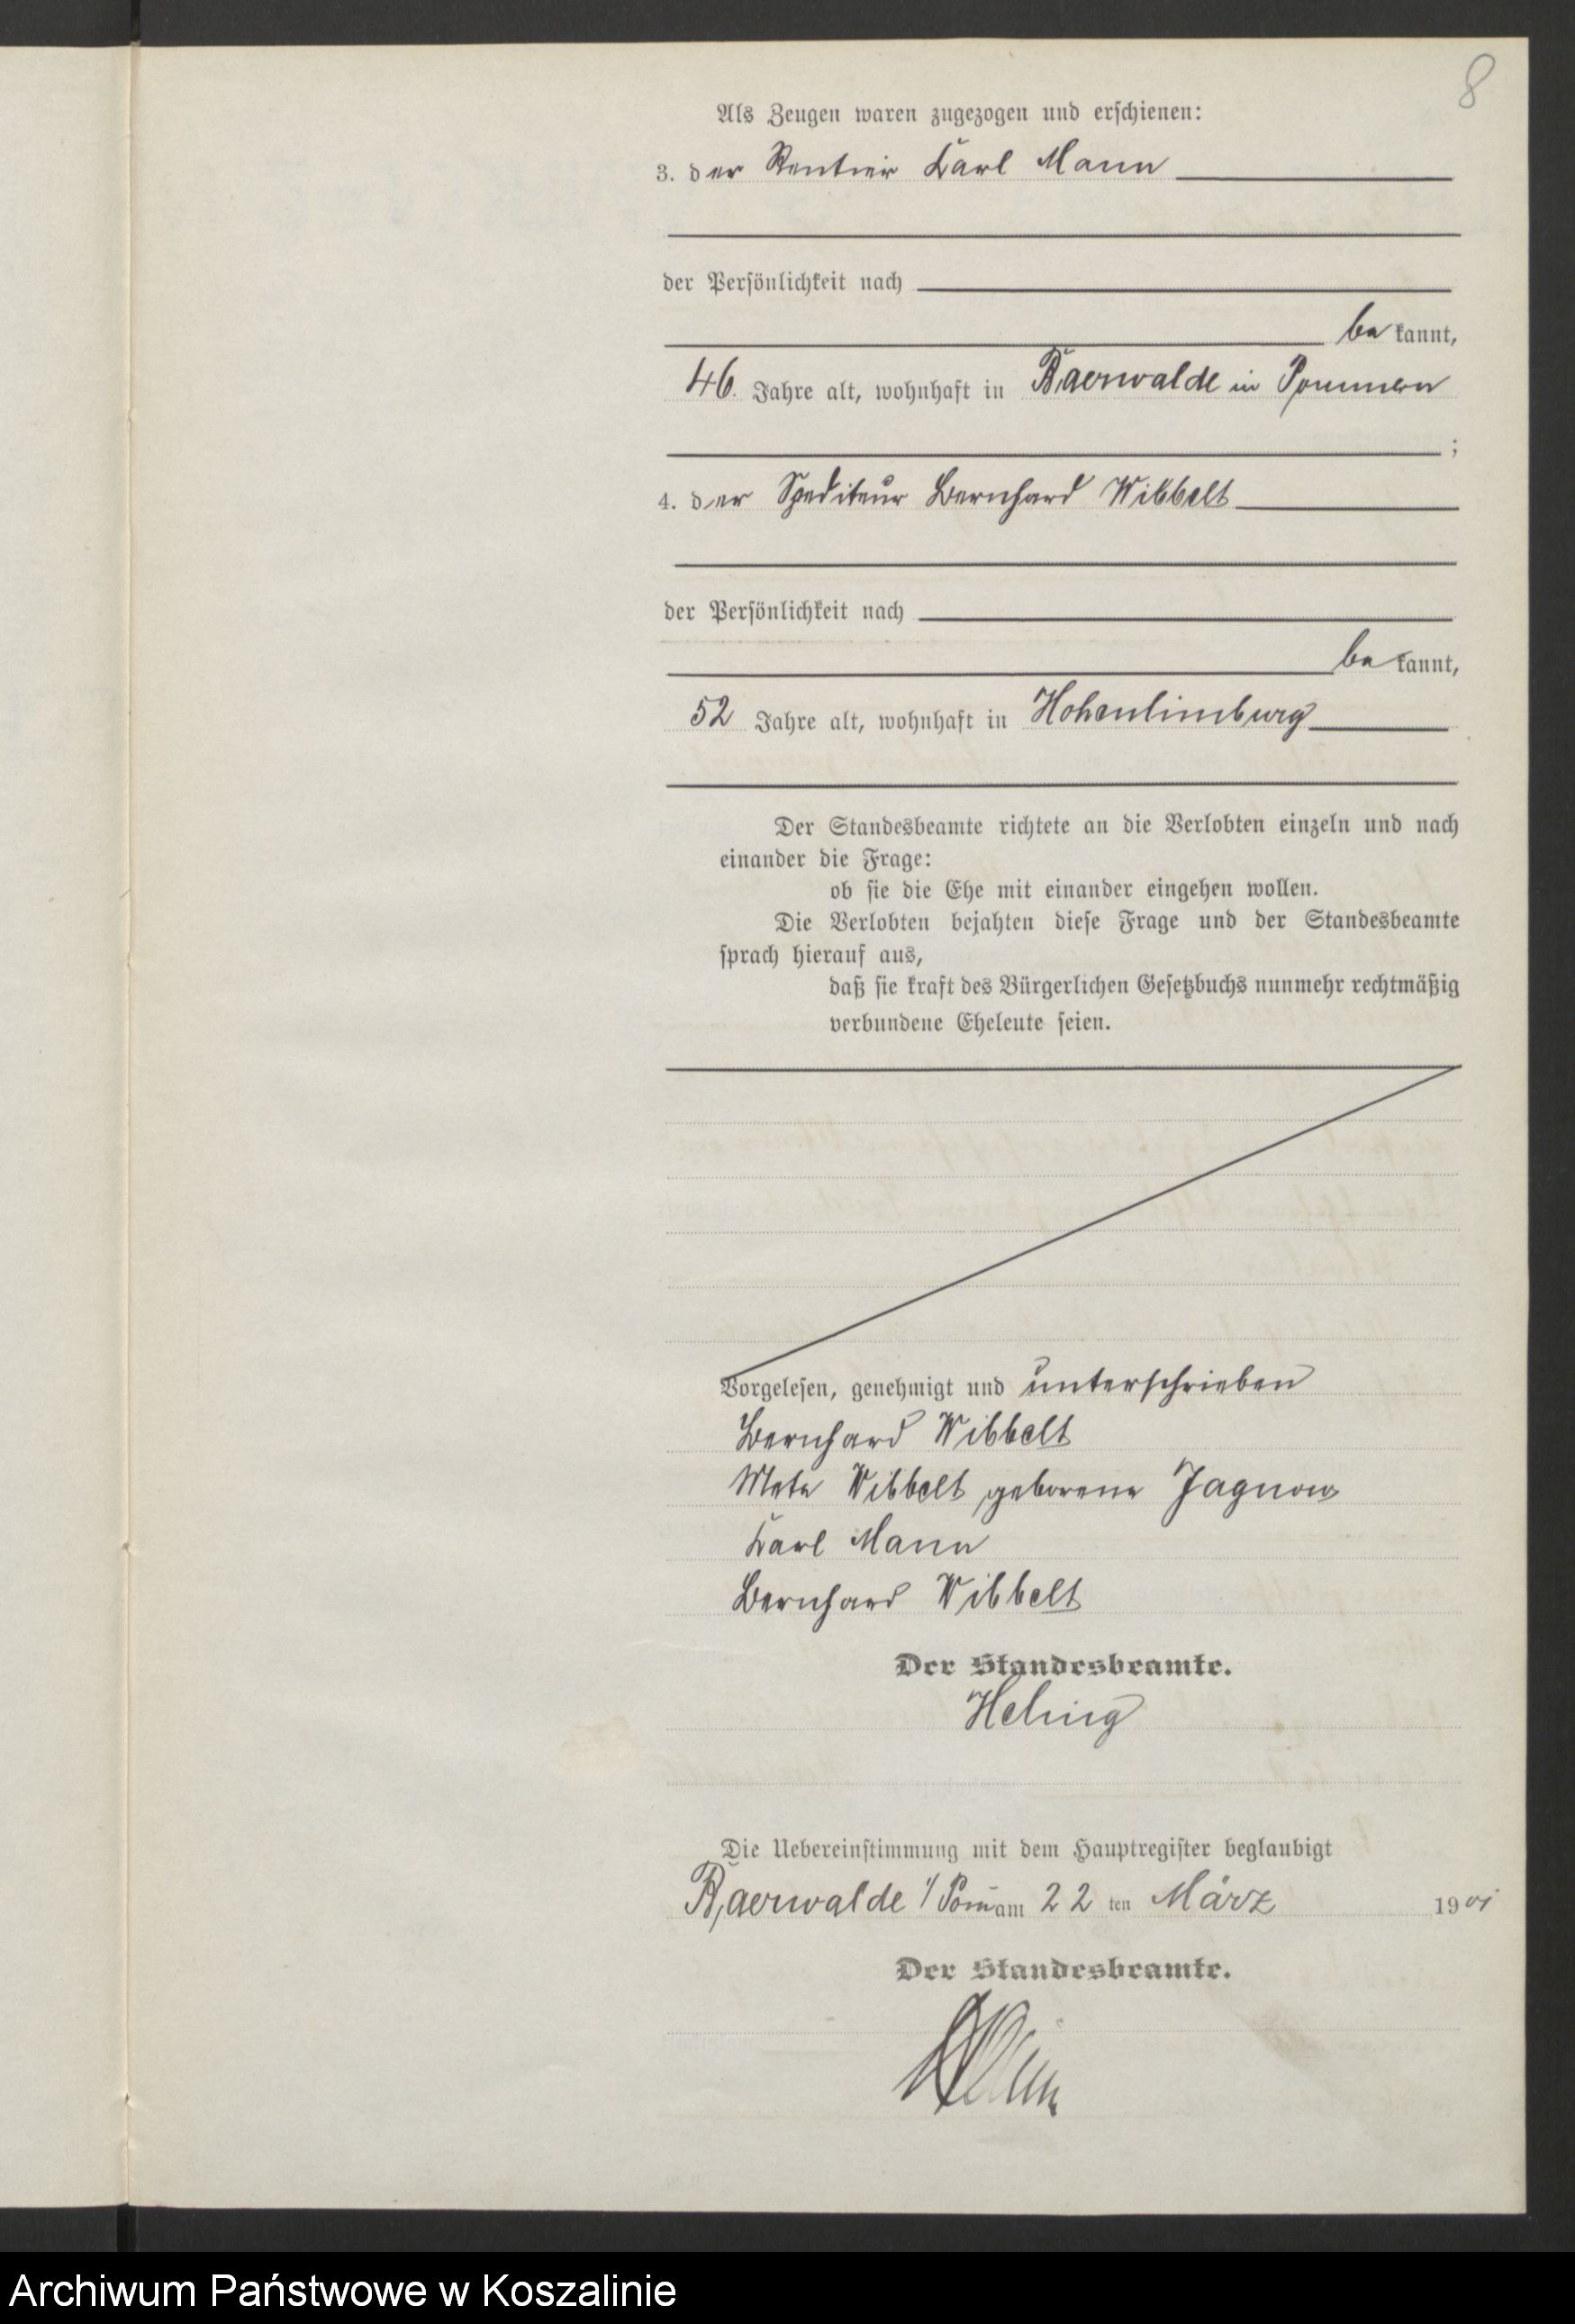 8
Als Zeugen waren zugezogen und erschienen:
3. der Rentier Karl Mann
der Persönlichkeit nach
bekannt,
46. Jahre alt, wohnhaft in Baerwalde in Pommern
;
4. der Spediteur Bernhard Wibbelt
der Persönlichkeit nach
bekannt,
52 Jahre alt, wohnhaft in Hohenlimburg
Der Standesbeamte richtete an die Verlobten einzeln und nach
einander die Frage:
ob sie die Ehe mit einander eingehen wollen.
Die Verlobten bejahten diese Frage und der Standesbeamte
sprach hierauf aus,
daß sie kraft des Bürgerlichen Gesetzbuchs nunmehr rechtmäßig
verbundene Eheleute seien.
Vorgelesen, genehmigt und unterschrieben
Bernhard Wibbelt
Meta Wibbelt geborene Jagnow
Karl Mann
Bernhard Wibbelt
Der Standesbeamte.
Die Uebereinstimmung mit dem Hauptregister beglaubigt
Baerwalde i/Pom̄ am 22 ten März 1901
Der Standesbeamte.
Archiwum Państwowe w Koszalinie